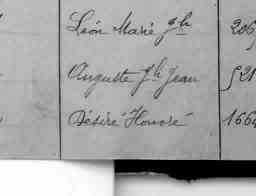 Léon Marie Jh 206
Auguste Jh Jean 521
Désiré Honoré 1664